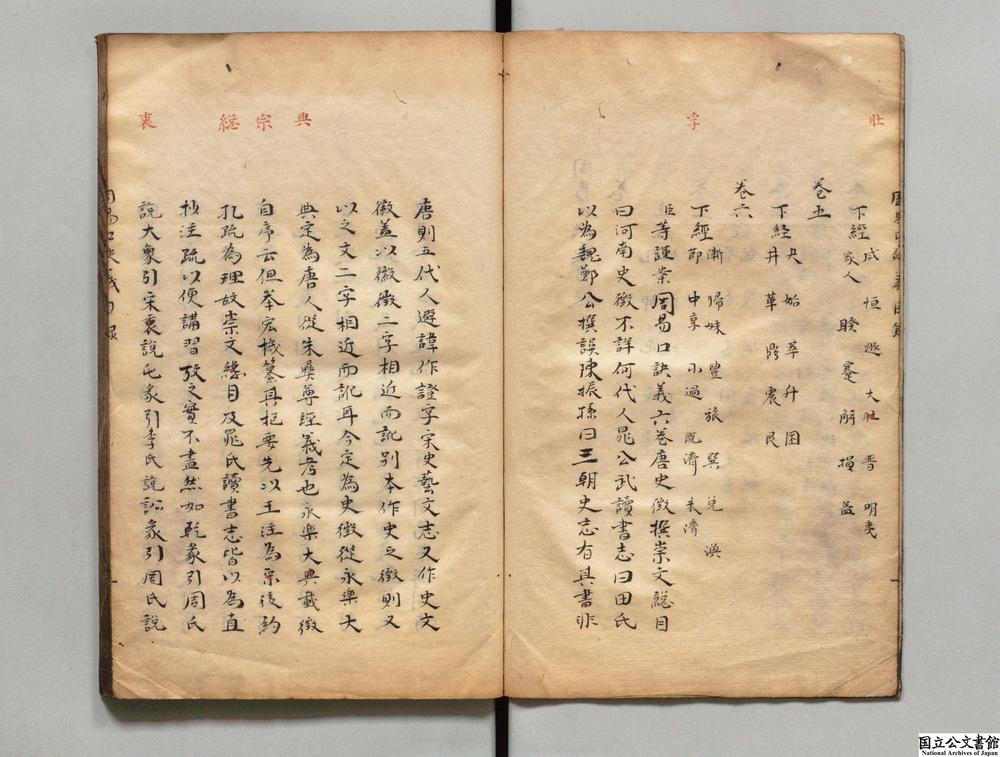 壯
字
下經咸 恒 遯 大壯 晋 明夷
家人 睽 蹇 解 損 益
卷五
下經夬 姤 萃 升 困
井 革 鼎 震 艮
卷六
下經漸 歸妹 豊 旅 巽 兌 渙
節 中孚 小過 既濟 未濟
臣等謹案周易口訣義六卷唐史徵撰崇文総目
曰河南史徵不詳何代人晁公武讀書志曰田氏
以為魏鄭公撰誤陳振孫曰三朝史志有其書非
典
宗
総
衷
唐則五代人避諱作證字宋史藝文志又作史文
徽蓋以徽徵二字相近而訛別本作史之徵則又
以之文二字相近而訛耳今定為史徵從永樂大
典定為唐人從朱彝尊經義考也永樂大典載徵
自序云但舉宏機纂其樞要先以王注為宗後約
孔疏為理故崇文総目及晁氏讀書志皆以為直
抄注疏以便講習攷之實不盡然如乾彖引周氏
說大象引宋衷說屯彖引李氏說訟彖引周氏說
国立公文書館
National Archives of Japan